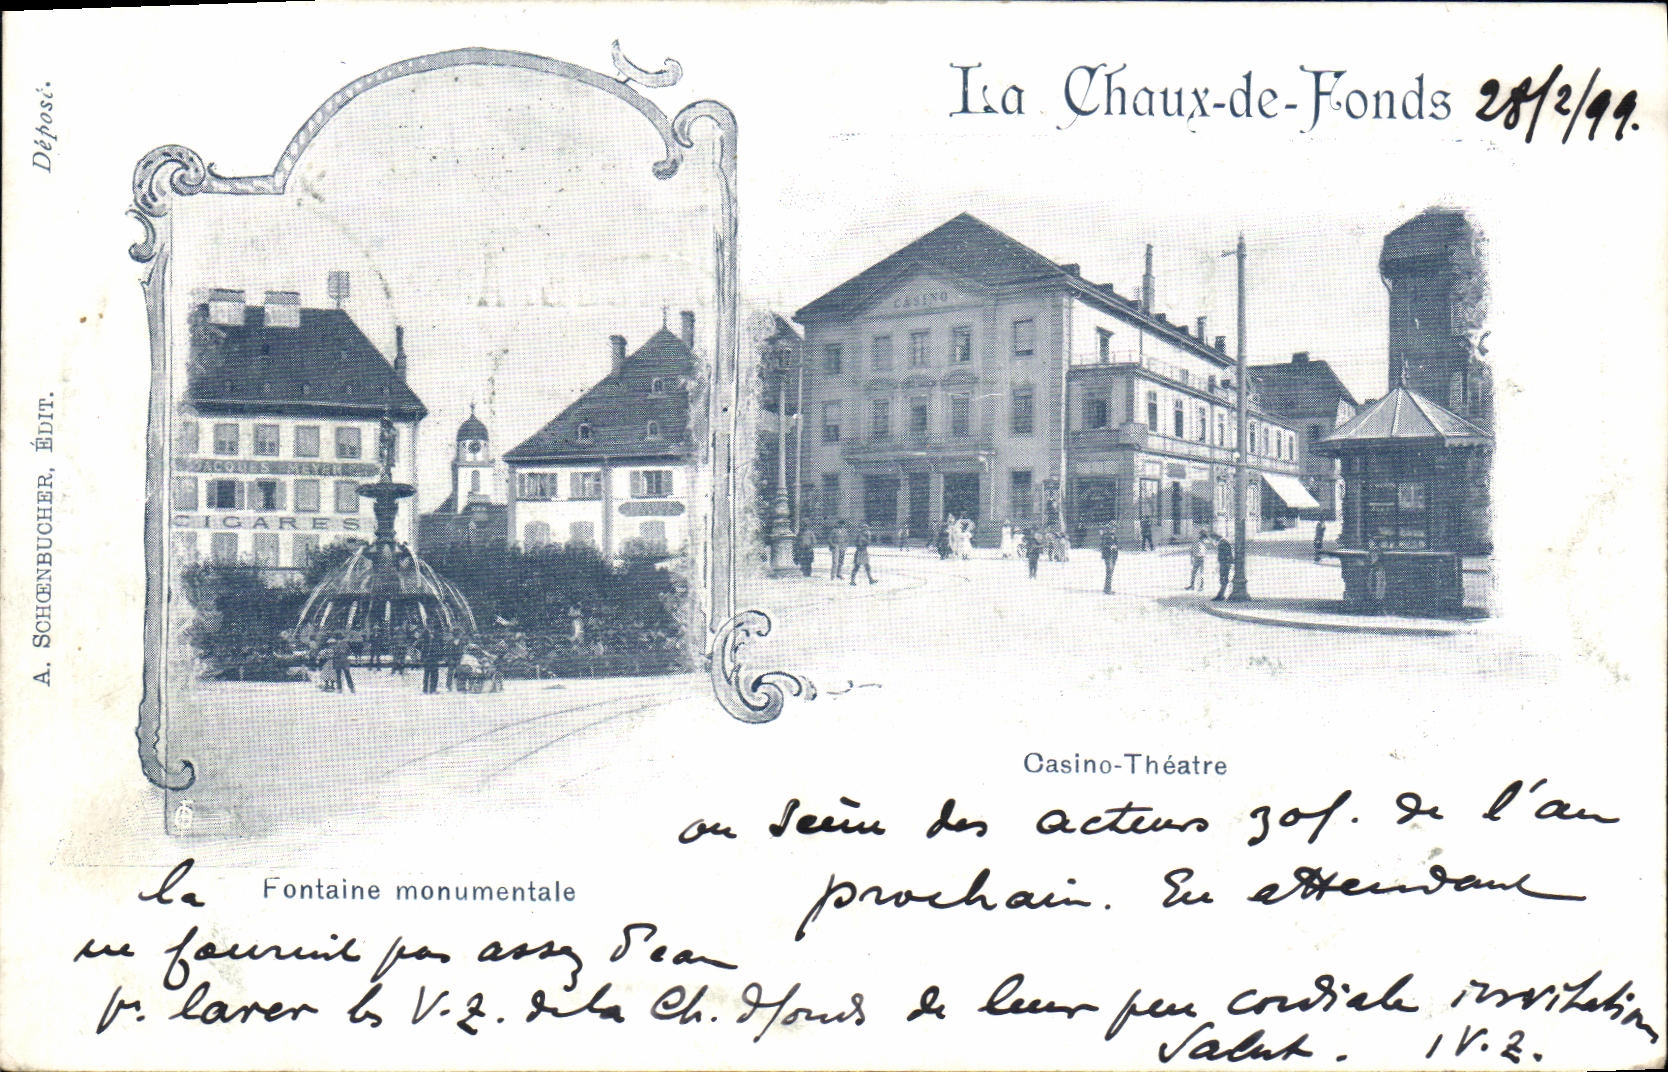 Déposé.
A. SCHŒNBUCHER, ÉDIT.
La Chaux-de-Fonds 28/2/99.
CASINO
JACQUES MEYER
CIGARES
Casino-Théatre
ou des acteurs zof. de l'an
prochain. En attendant
la Fontaine monumentale
ne fournit pas assez d'eau
pr. laver les V.Z. de la Ch. dfonds de leur peu cordiale invitation
Salut. 1 V.Z.